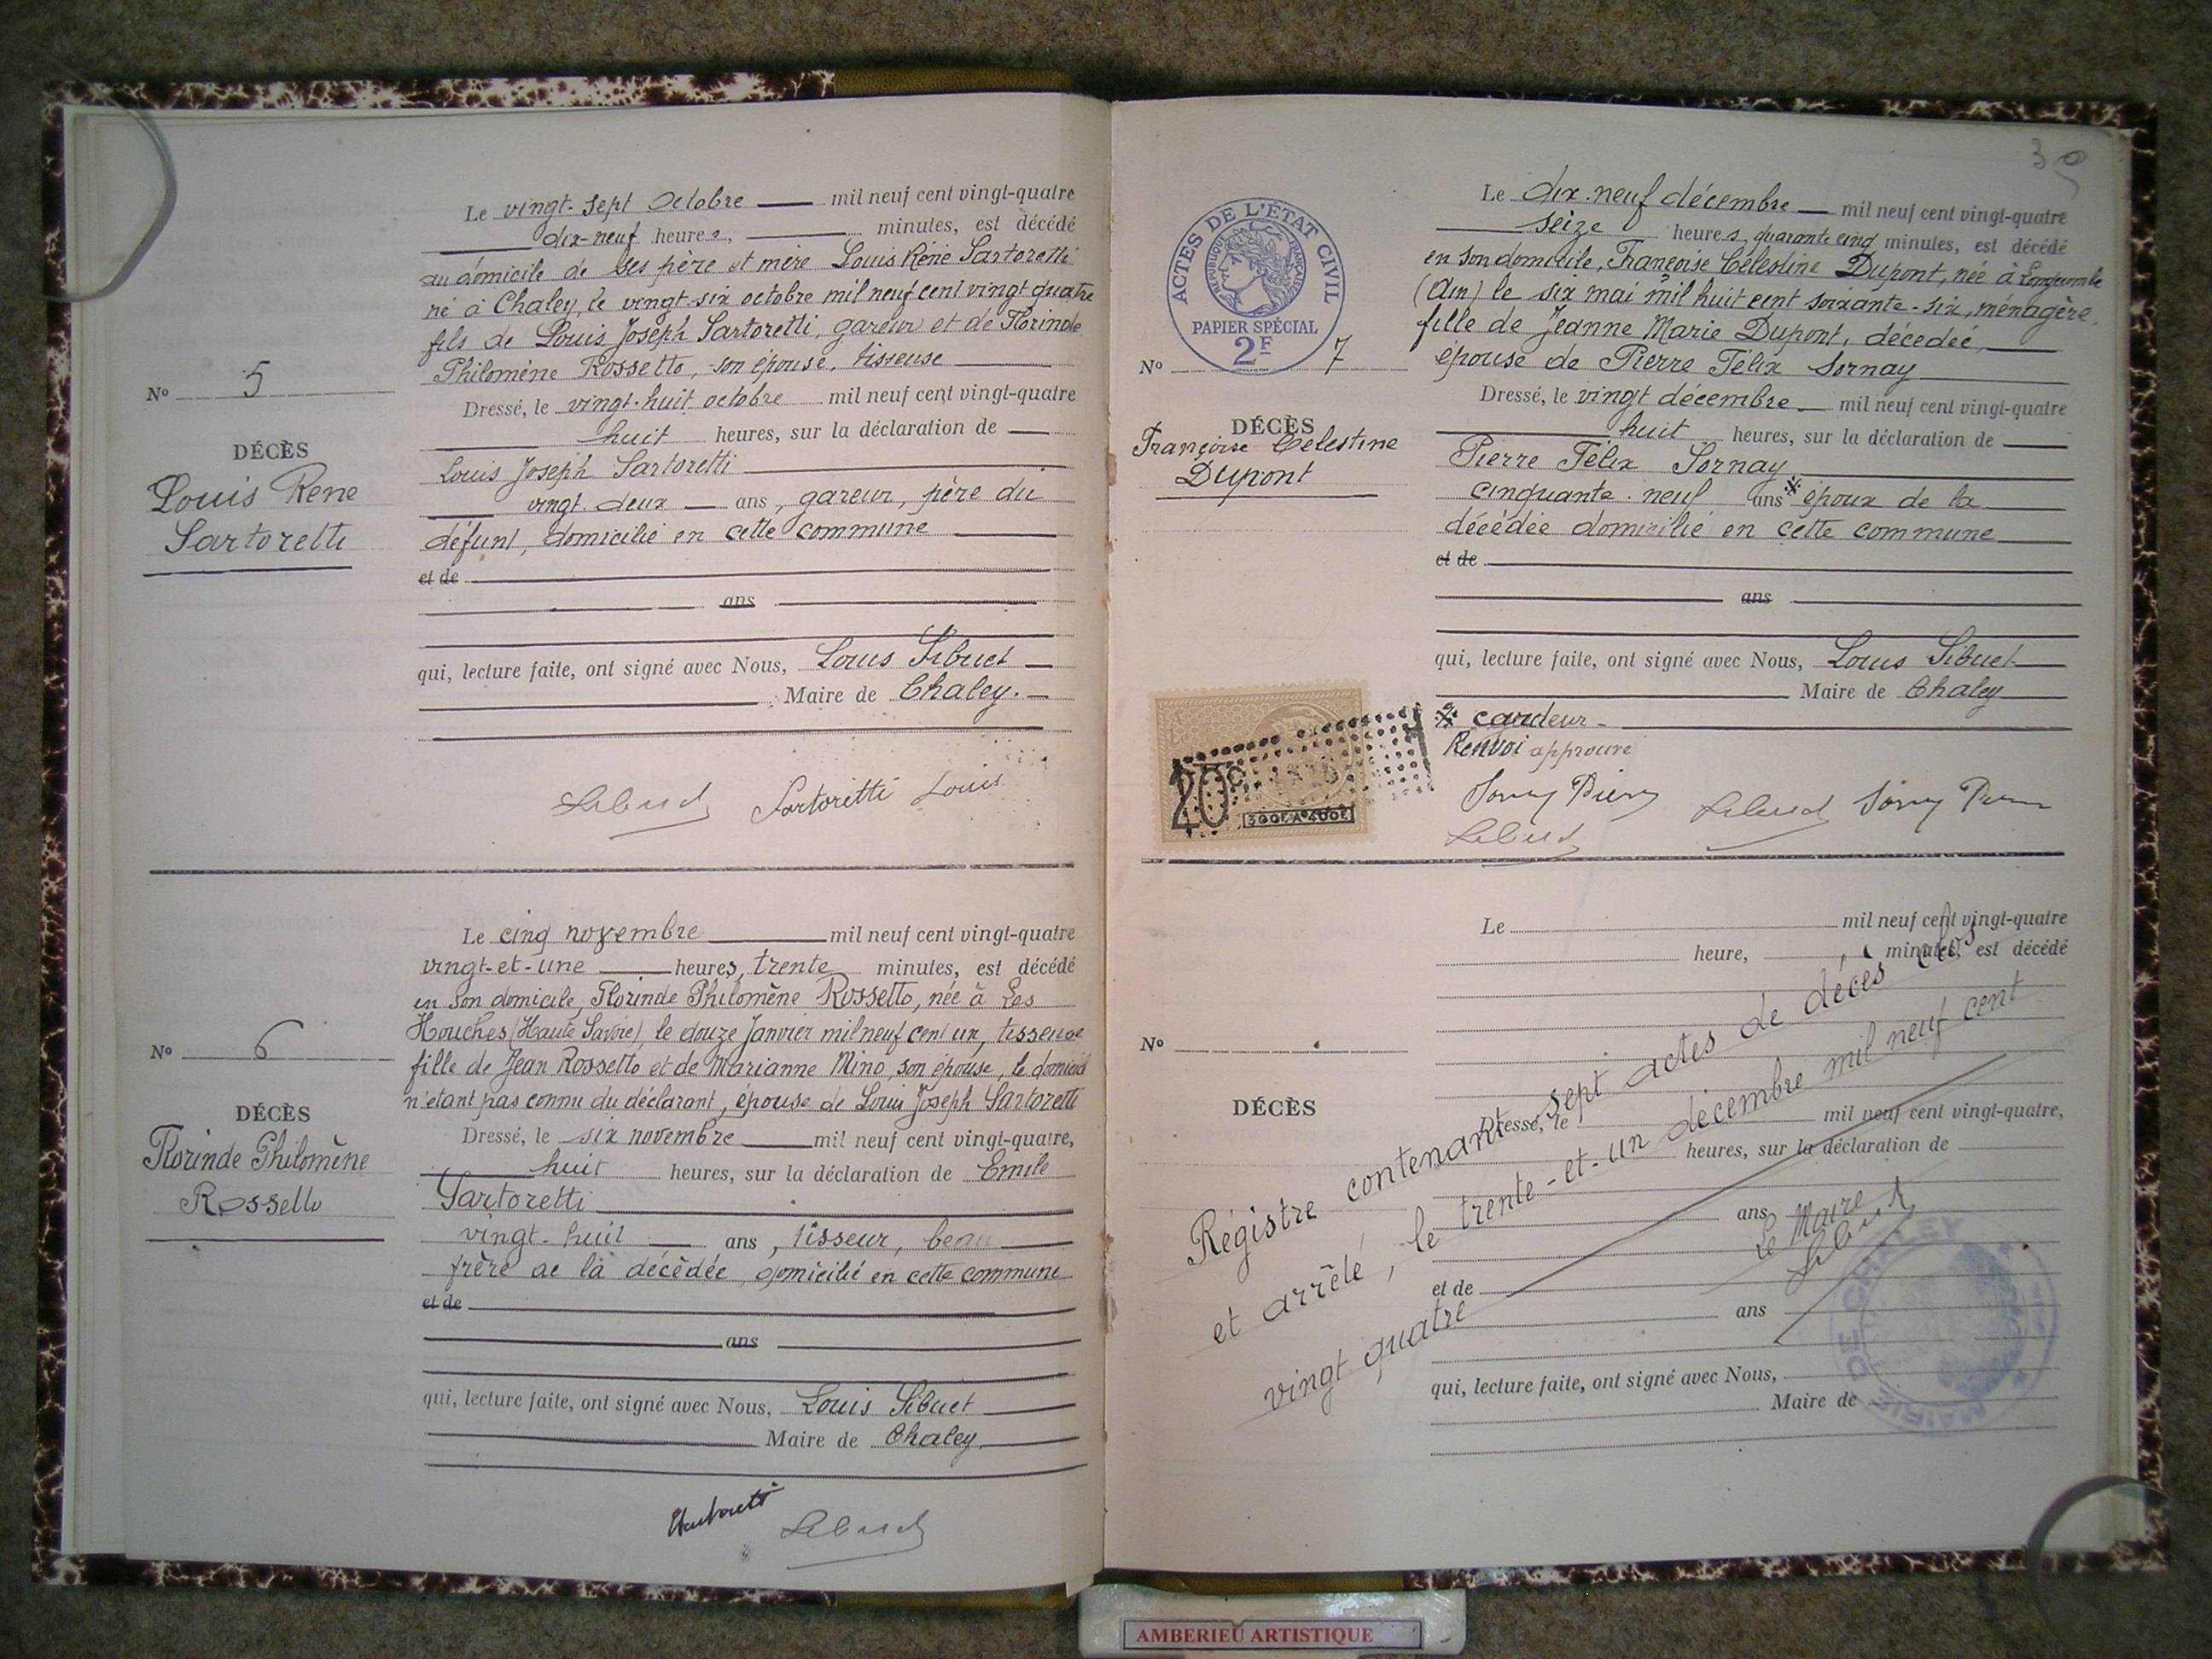 Le vingt-sept Octobre mil neuf cent vingt-quatre
dix-neuf heures, minutes, est décédé
au domicile de ses père et mère Louis Réné Sartoretti
né à Chaley, le vingt-six octobre mil neuf cent vingt quatre
fils de Louis Joseph Sartoretti, gareur et de Florinde
Philomène Rossetto, son épouse, tisseuse
No 5
Dressé, le vingt-huit octobre mil neuf cent vingt-quatre
huit heures, sur la déclaration de
DÉCÈS
Louis Rene
Sartoretti
Louis Joseph Sartoretti
vingt-deux ans, gareur, père du
défunt, domicilié en cette commune
et de
ans
qui, lecture faite, ont signé avec Nous, Louis Sibuet
Maire de Chaley.
Sibuet Sartoretti Louis
Le cinq novembre mil neuf cent vingt-quatre
vingt-et-une heures, trente minutes, est décédé
en son domicile, Florinde Philomène Rossetto, née à Les
Houches (Haute Savoie), le douze Janvier mil neuf cent un, tisseuse
No 6
fille de Jean Rossetto et de Marianne Mino, son épouse, le domicil
n'étant pas connu du déclarant, épouse de Louis Joseph Sartoretti
DÉCÈS
Florinde Philomène
Rossetto
Dressé, le six novembre mil neuf cent vingt-quatre,
huit heures, sur la déclaration de Emile
Sartoretti
vingt-huit ans, tisseur, beau
frère de la décédée, domicilié en cette commune
et de
ans
qui, lecture faite, ont signé avec Nous, Louis Sibuet
Maire de Chaley
Sibuet
30
ACTES DE L'ÉTAT CIVIL
RÉPUBLIQUE FRANÇAISE
PAPIER SPÉCIAL
2F
No 7
DÉCÈS
Françoise Célestine
Dupont
Le dix-neuf décembre mil neuf cent vingt-quatre
seize heures, quarante cinq minutes, est décédé
en son domicile, Françoise Célestine Dupont, née à Longecombe
(Ain) le six mai mil huit cent soixante-six, ménagère,
fille de Jeanne Marie Dupont, décédée,
épouse de Pierre Félix Sornay
Dressé, le vingt décembre mil neuf cent vingt-quatre
huit heures, sur la déclaration de
Pierre Félix Sornay
cinquante-neuf ans * époux de la
décédée domicilié en cette commune
et de
ans
qui, lecture faite, ont signé avec Nous, Louis Sibuet
Maire de Chaley
* cardeur
Renvoi approuvé
20c
300F A 400F
Sibuet
Sibuet
Le mil neuf cent vingt-quatre
heure, minutes, est décédé
No
DÉCÈS
Dressé, le mil neuf cent vingt-quatre,
heures, sur la déclaration de
ans
et de
ans
qui, lecture faite, ont signé avec Nous,
Maire de
Régistre contenant sept actes de décès clos
et arrêté, le trente-et-un décembre mil neuf cent
vingt quatre
Le Maire
Sibuet
MAIRIE DE CHALEY
AMBERIEU ARTISTIQUE